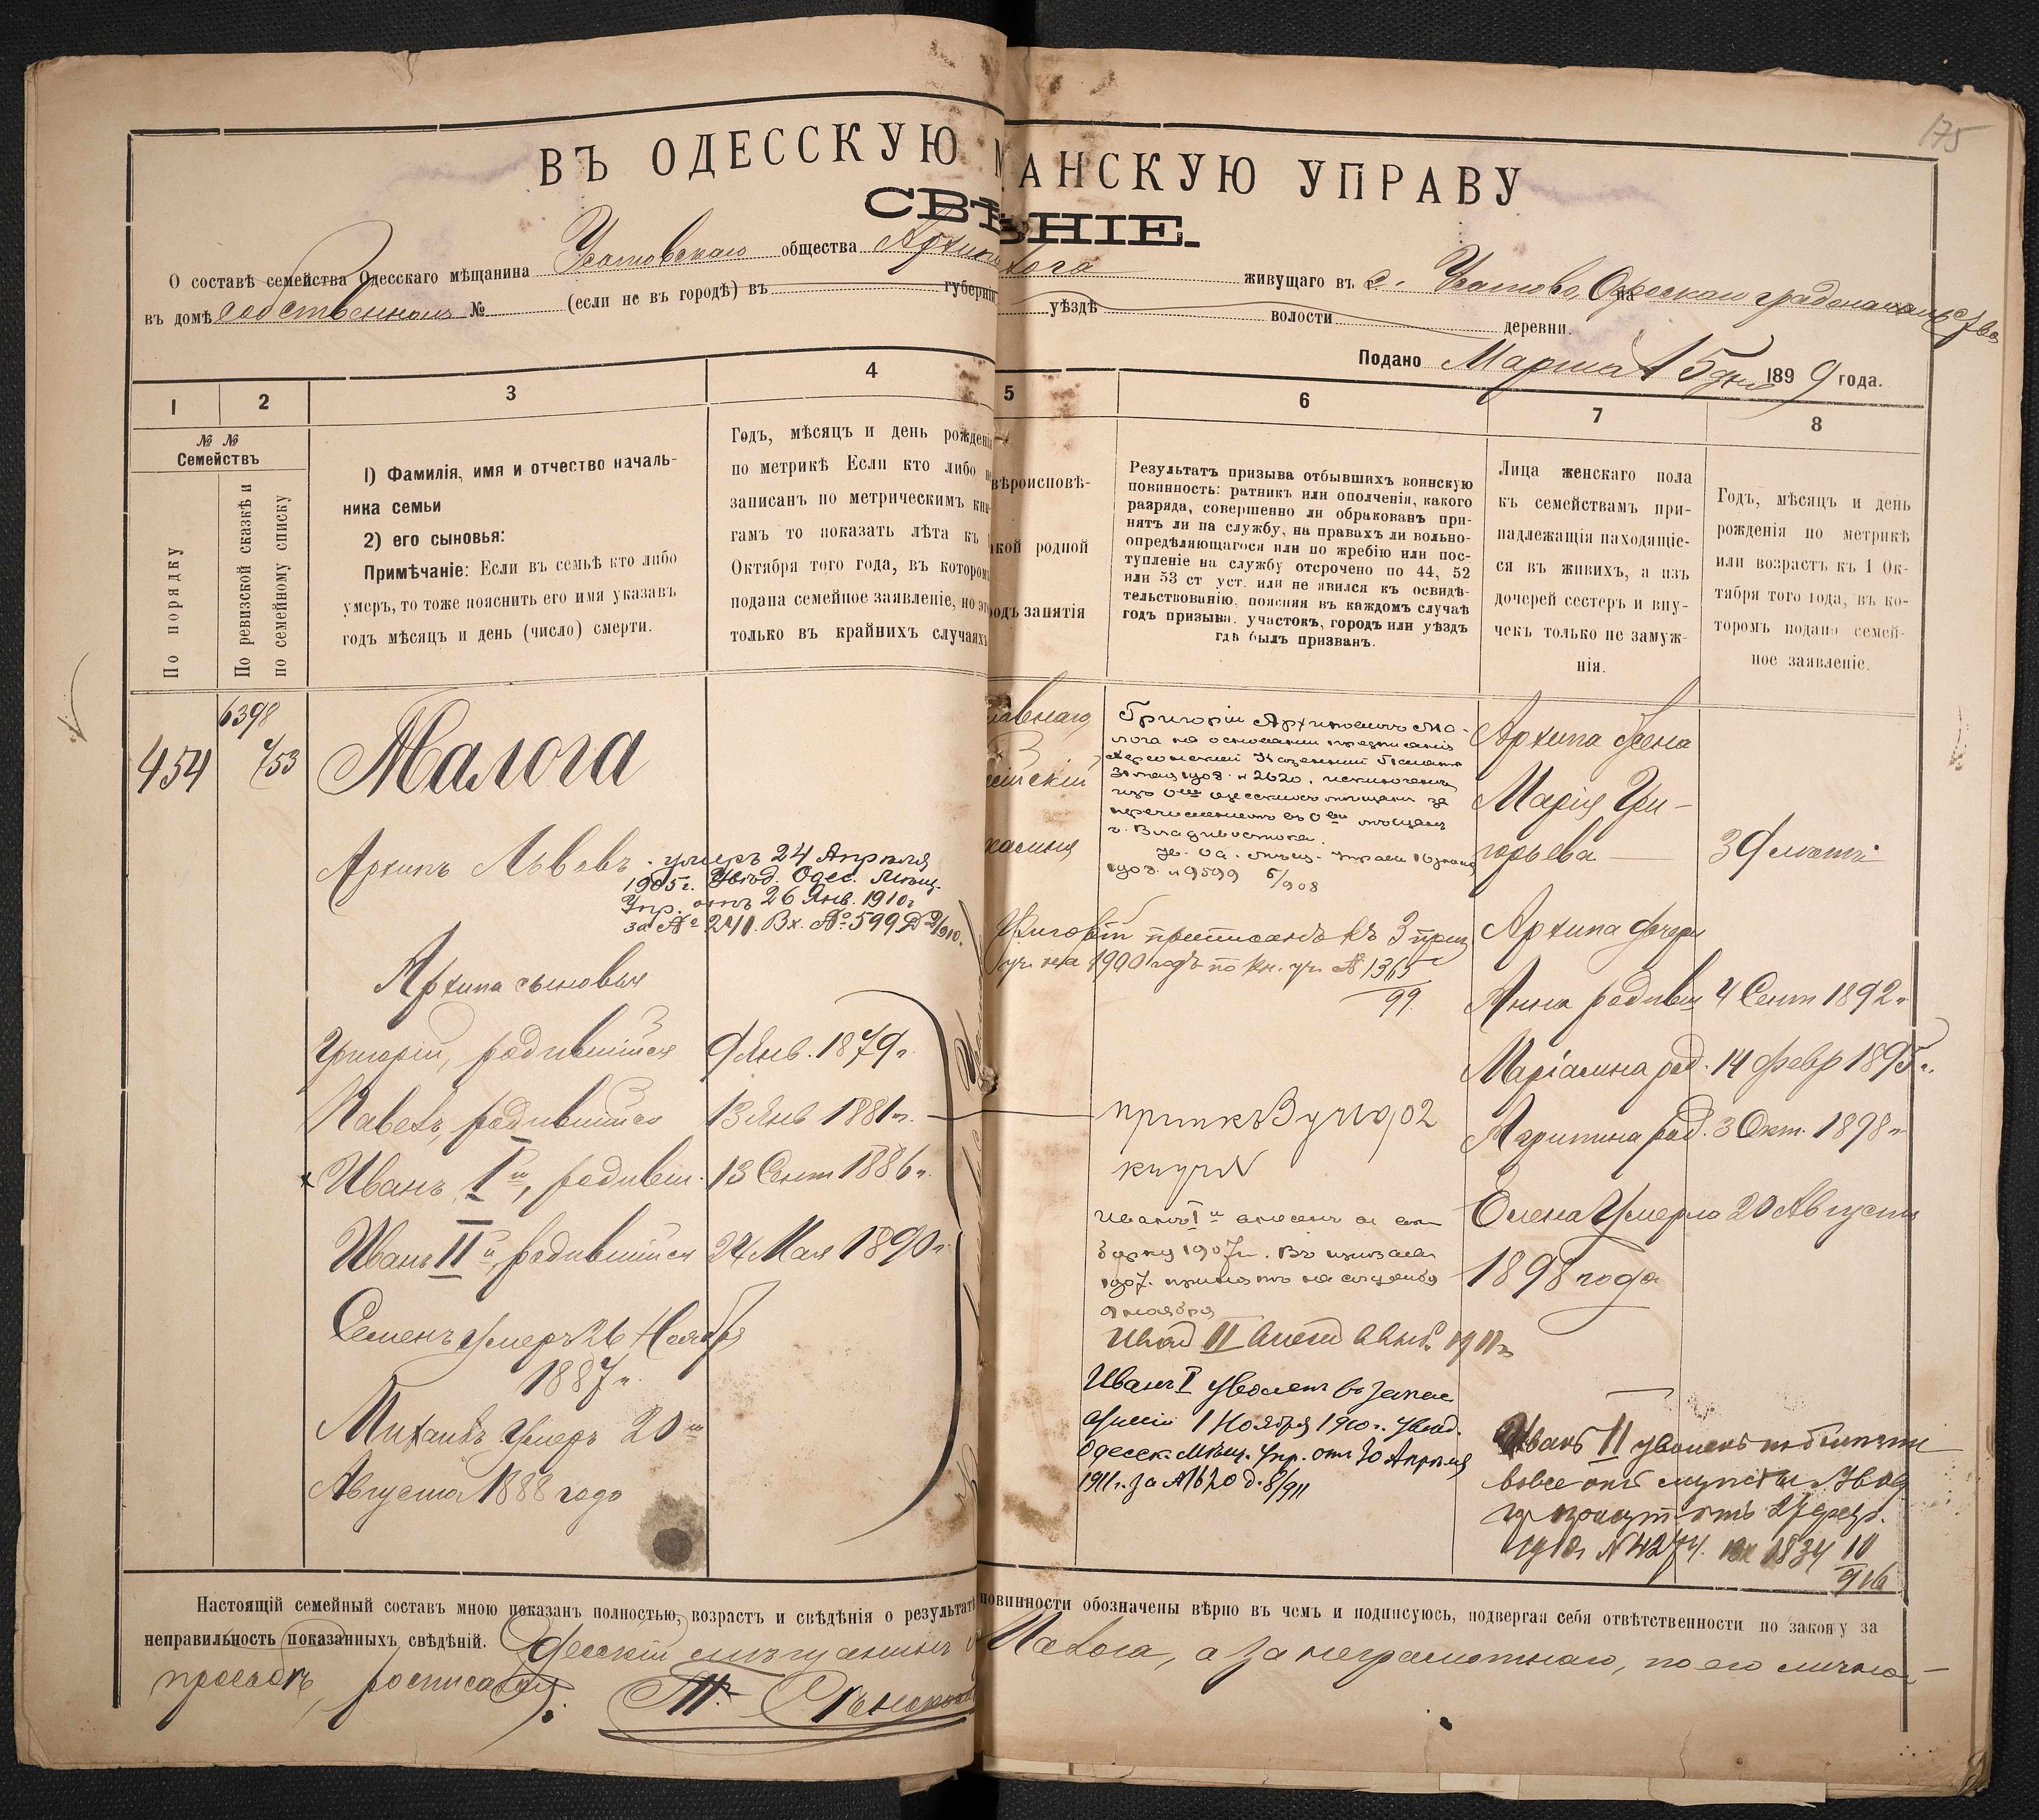 175
ВЪ ОДЕССКУЮ М АНСКУЮ УПРАВУ
СВѢ ѢНІЕ.
О составѣ семейства Одесскаго мѣщанина Усатовскаго общества Архипа лога живущаго въ с. Усатово, Одесскаго градоначальства
въ домѣ собственномъ № (если не въ городѣ) въ губерніи уѣздѣ волости деревни
Подано Марта 15 дня 1899 года.
1 2 3 4 5 6 7 8
№ №
Семействъ
По порядку
По ревизской сказкѣ и
по семейному списку
1) Фамилія, имя и отчество началь-
ника семьи
2) его сыновья:
Примѣчаніе: Если въ семьѣ кто либо
умеръ, то тоже пояснить его имя указавъ
годъ мѣсяцъ и день (число) смерти.
Годъ, мѣсяцъ и день рожденія
по метрикѣ Если кто либо не
записанъ по метрическимъ кни-
гамъ то показать лѣта къ 1
Октября того года, въ которомъ
подана семейное заявленіе, но это
только въ крайнихъ случаяхъ
вѣроисповѣ-
кой родной
родъ занятія
Результатъ призыва отбывшихъ воинскую
повинность: ратникъ или ополченія, какого
разряда, совершенно ли обракованъ при-
нятъ ли на службу, на правахъ ли вольно-
опредѣляющагося или по жребію или пос-
тупленіе на службу отсрочено по 44, 52
или 53 ст уст. или не явился къ освидѣ-
тельствованію, поясняя въ каждомъ случаѣ
годъ призыва, участокъ, городъ или уѣздъ
гдѣ былъ призванъ.
Лица женскаго пола
къ семействамъ при-
надлежащія находящіе-
ся въ живихъ, а изъ
дочерей сестеръ и вну-
чекъ только не замуж-
нія.
Годъ, мѣсяцъ и день
рожденія по метрикѣ
или возрастъ къ 1 Ок-
тября того года, въ ко-
торомъ подано семей-
ное заявленіе.
454
6398
/53
Малога
Архипъ Львовъ умеръ 24 Апрѣля
1905 г. Увѣд. Одес. Мѣщ.
Упр. отъ 26 Янв. 1910 г
за № 241. Вх. № 599 Д 2/910.
Архипа сыновья
Григорій, родившійся 9 Янв. 1879 г.
Павелъ, родившійся 13 Янв 1881 г.
Иванъ I й, родивш. 13 Сент 1886 г.
Иванъ II й, родившійся 24 Мая 1890 г.
Семенъ умеръ 26 Ноября
1887 г.
Михаилъ умеръ 20 го
Августа 1888 года
Григорій Архиповичъ Ма-
лога на основаніи предписанія
Херсонской Казенной Палаты
31 мая 1908 № 2620, исключенъ
изъ Одесскихъ мѣщанъ за
перечисленіемъ въ мѣщане
г. Владивостока.
№ 9599 6/908
Григорій приписанъ къ 3 приз
уч. на 1900 годъ по кн. уч. № 1365
99
прип къ 3 уч 1902
кн уч №
Иванъ I й внесенъ въ
1907 г. Въ призывъ
1907. принятъ на службу
9 ноября
Иванъ II
Иванъ I уволенъ въ запасъ
Арміи 1 Ноября 1910 г. увѣд.
Одесск. Мѣщ. Упр. отъ 30 Апрѣля
1911 г. за № 620 д. 8/911
Архипа жена
Марія Гри-
горьева 39 лѣтъ
Архипа дочери
Анна родивш 4 Сент 1892 г
Маріамна род. 14 февр 1895 г.
Агрипина род. 3 Окт. 1898 г
Елена Умерла 20 Августа
1898 года
Иванъ II уволенъ по болѣзни
вовсе отъ службы Увѣд
отъ 27
1834 10
916
Настоящій семейный составъ мною показанъ полностью, возрастъ и свѣдѣнія о результатѣ повинности обозначены вѣрно въ чемъ и подписуюсь, подвергая себя отвѣтственности по закону за
неправильность показанныхъ свѣдѣній. Одесскій мѣщанинъ Малога, а за неграмотнаго, по его личной
просьбѣ, росписался: